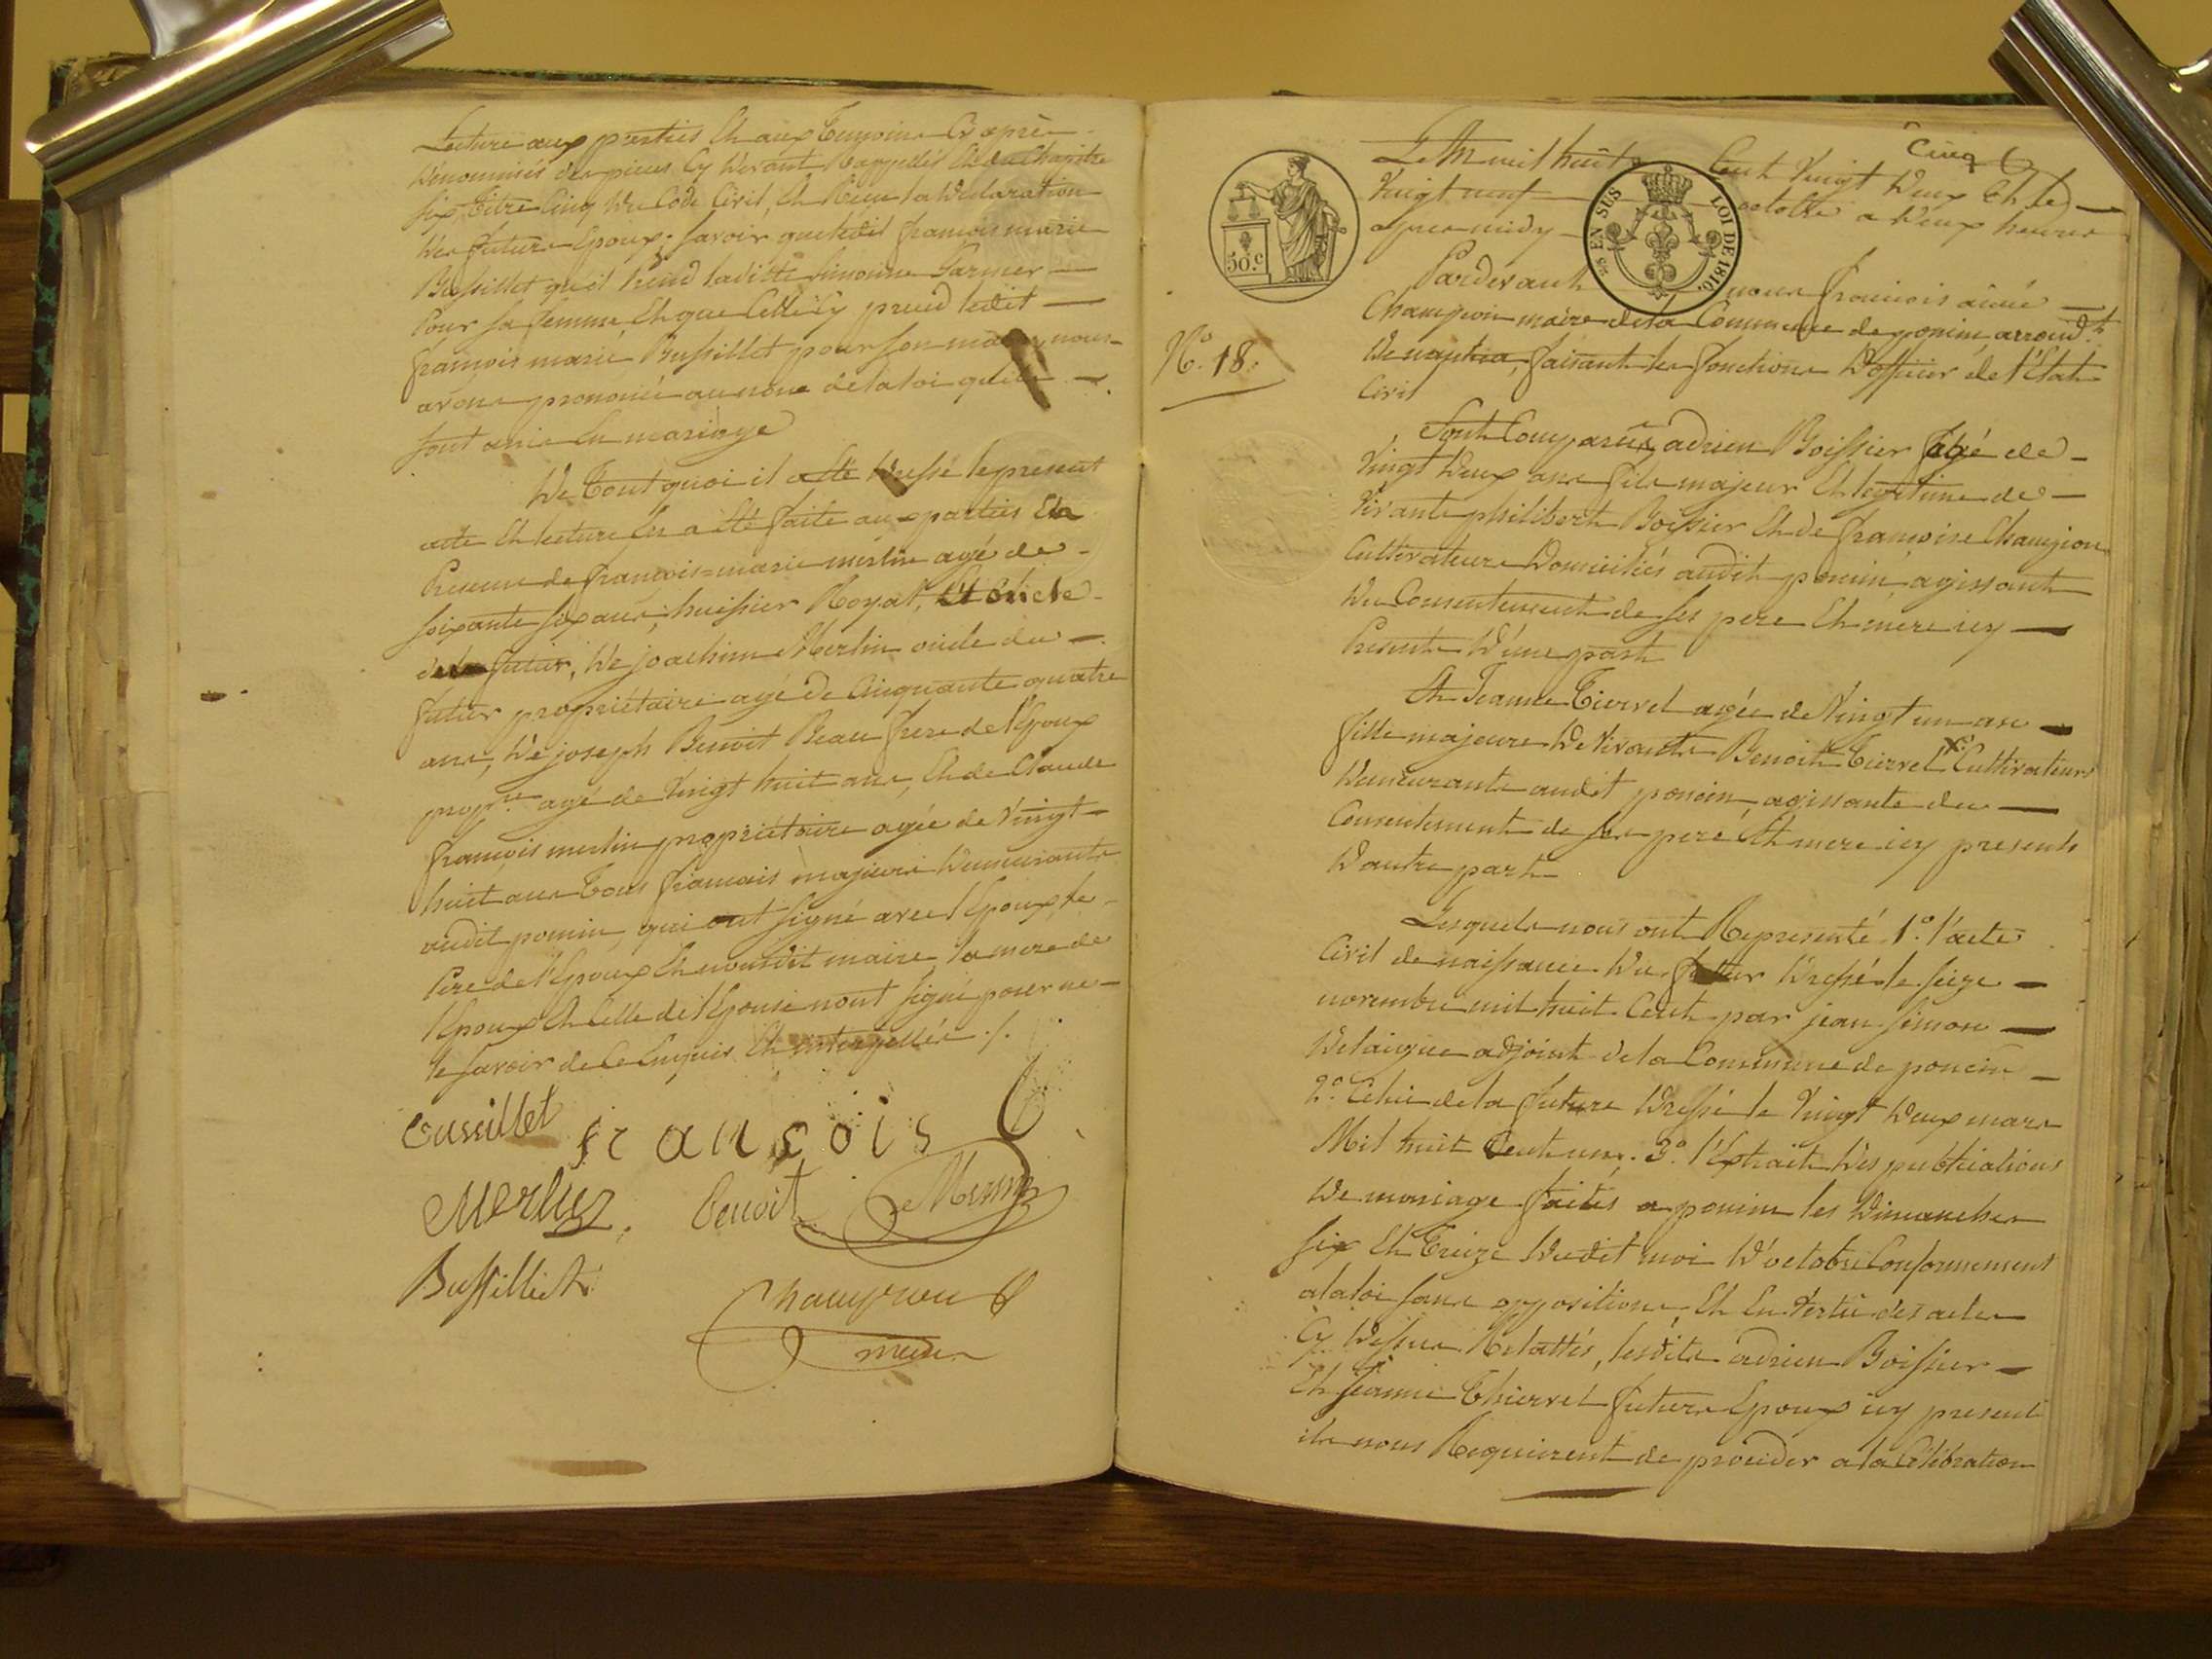 Lecture aux parties Et aux Temoins Cy après
Dénommés des pieces Cy Devant Rappellés Et du Chapitre
six, Titre Cinq Du Code Civil, Et Reçu la Declaration
Des futurs Epoux; savoir que ledit françois marie
Bussillet qu'il Prend laditte Simonne Garnier
Pour sa femme, Et que Celle cy prend ledit
françois marie Bussillet pour son mary, nous
avons prononcé au nom de la loi qu'ils
sont unis En mariage
De Tout quoi il a Eté Dressé le present
acte Et lecture En a Eté faite aux parties En
Presence de françois=marie merlin agé de
soixante six ans, huissier Royal,
futur, De joachim Merlin oncle du
futur propriétaire agé De Cinquante quatre
ans, De joseph Benoit Beau frere de l'Epoux
propre agé de Vingt huit ans, Et de Claude
françois merlin propriétaire agée de Vingt
huit ans Tous francais majeurs Demeurants
audit poncin, qui ont signé avec l'Epoux, le
Pere de l'Epoux Et nousdit maire, la mere de
l'Epoux Et Celle de l'Epouse n'ont signé pour ne
le savoir de Ce Enquis Et interpellés ./.
Bussillet françois
Merlin. Benoit Merlin
Bussillet
Champion
maire
Cinq
50.c
EN SUS
LOI DE 1816.
L'An mil huit Cent Vingt Deux Et le
Vingt neuf octobre a Deux heures
apres midy
Pardevant nous françois aimé
Champion maire de la Commune de poncin, arrondt
De nantua, faisant les fonctions D'officier de l'Etat
Civil
N.o 18.
Sont Comparus, adrien Boissier agé de
Vingt Deux ans fils majeur Et legitime de
Vivants philibert Boissier Et de françoise Champion
Cultivateurs Domiciliés audit poncin, agissant
Du Consentement de ses pere Et mere icy
Presents D'une part
Et Jeanne Tierret agée de Vingt un ans
fille majeure De Vivants Benoit Tierret X Cultivateurs
Demeurants audit poncin, agissante du
Consentement de ses pere Et mere icy presents
D'autre part
Lesquels nous ont Representé 1.o l'acte
Civil de naissance Du futur Dressé le seize
novembre mil huit Cent par jean simon
Delaigue adjoint de la Commune de poncin
2.o Celui de la future Dressé le Vingt Deux mars
Mil huit Cent un. 3.o l'Extrait Des publications
De mariage faites a poncin les Dimanches
six Et Treize Dudit moi D'octobre Conformement
a la loi sans oppositions, Et En Vertu des actes
Cy Dessus Relattés, lesdits adrien Boissier
Et Jeanne Thierret futurs Epoux icy present
ils nous Requierent de proceder a la Célébration